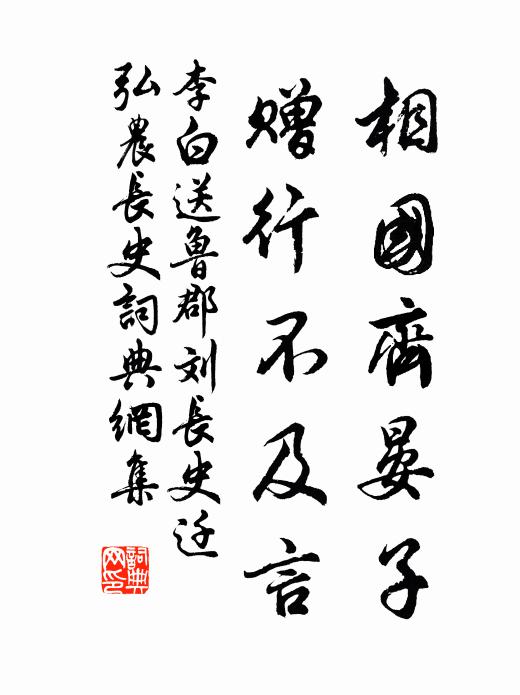 相國齊晏子
贈行不及言
李白送魯郡刘長史迁
弘農長史詞典網集
詞典
网印